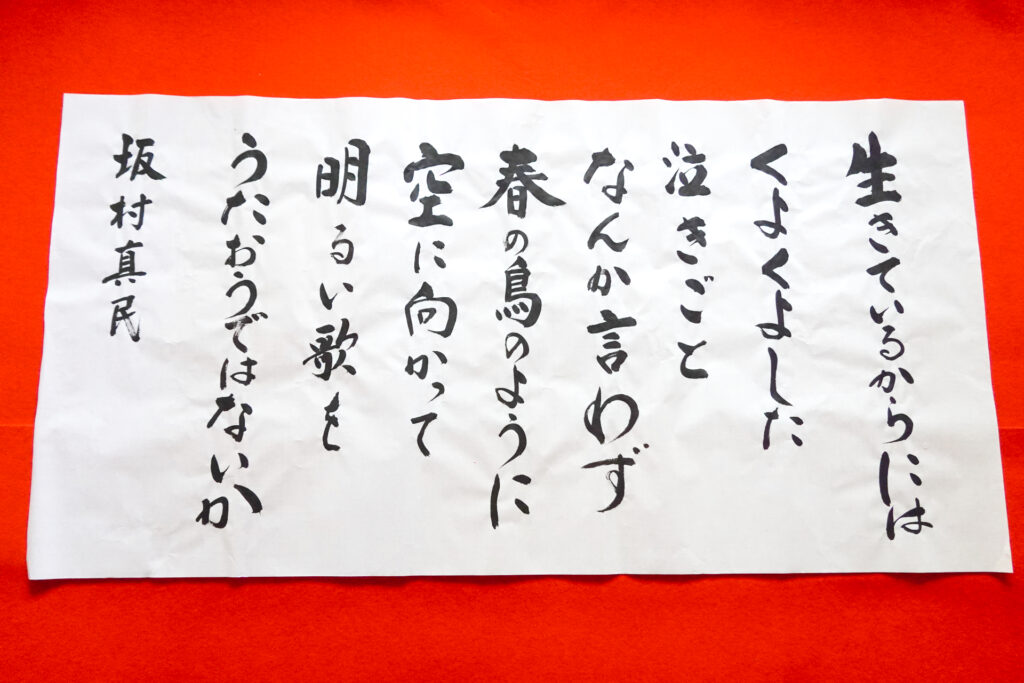 生きているからには
くよくよした
泣きごと
なんか言わず
春の鳥のように
空に向かって
明るい歌を
うたおうではないか
坂村真民